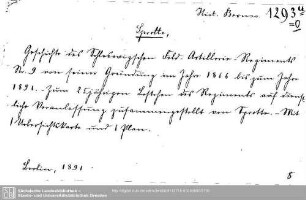 Hist. Boruss. 1293 u
=0
Sprotte,
Geschichte des Schleswigschen Feld-Artillerie-Regiments
Nr. 9 von seiner Gründung im Jahr 1866 bis zum Jahr
1891. Zum 25jährigen Bestehen des Regiments auf dienst-
liche Veranlassung zusammengestellt von Sprotte. Mit
1 Uebersichtskarte und 1 Plan.
Berlin, 1891.
8
Sächsische Landesbibliothek -
Staats- und Universitätsbibliothek Dresden